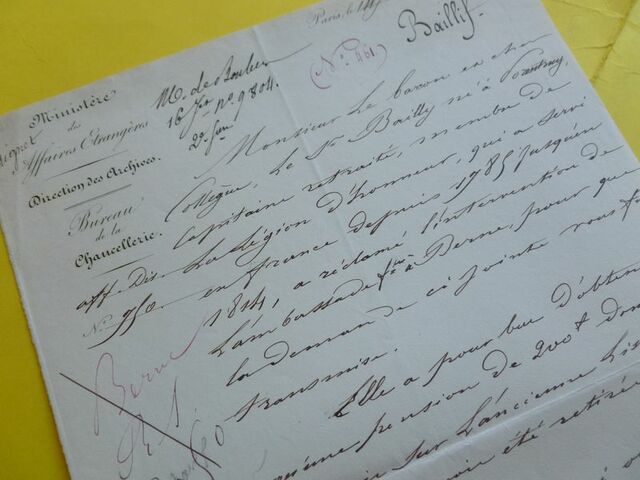 Paris, le
Baillif.
Ministère
des
Affaires Etrangères
Direction des Archives
Bureau
de la
Chancellerie.
M. de
16 Jer no. 9804.
2e
(No. 461.)
aff. Div.
No. 950
Monsieur Le baron et cher
Collègue, Le Sr. Bailly né à
Capitaine retraité, membre de
La Légion d'honneur, qui a servi
en france depuis 1785 jusqu'en
1814, a réclamé l'intervention de
L'ambassade à Berne, pour que
la demande ci jointe vous fut
transmise.
Elle a pour but d'obten
une pension de 200f
sur L'ancienne Lis
été retiré
Berne